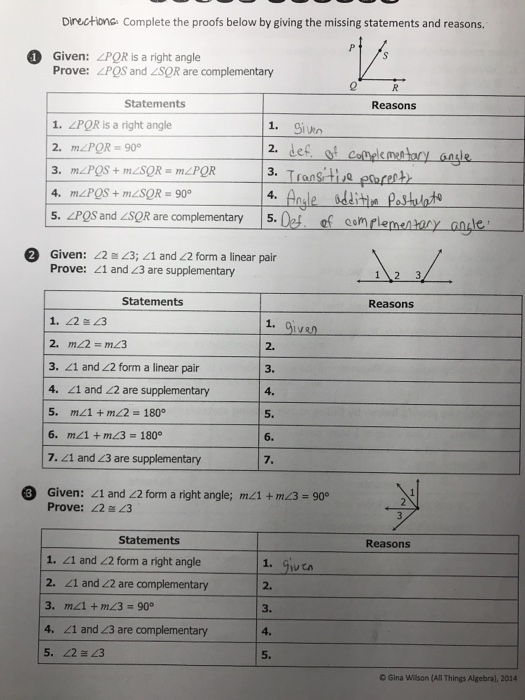 Directions: Complete the proofs below by giving the missing statements and reasons.
1 Given: ∠PQR is a right angle
Prove: ∠PQS and ∠SQR are complementary
P
S
Q
R
Statements
Reasons
1. ∠PQR is a right angle
1. Given
2. m∠PQR = 90º
2. def. of complementary angle
3. m∠PQS + m∠SQR = m∠PQR
3. Transitive property
4. m∠PQS + m∠SQR = 90º
4. Angle addition Postulate
5. ∠PQS and ∠SQR are complementary
5. Def. of complementary angle.
2 Given: ∠2 ≅ ∠3; ∠1 and ∠2 form a linear pair
Prove: ∠1 and ∠3 are supplementary
1 2 3
Statements
Reasons
1. ∠2 ≅ ∠3
1. given
2. m∠2 = m∠3
2.
3. ∠1 and ∠2 form a linear pair
3.
4. ∠1 and ∠2 are supplementary
4.
5. m∠1 + m∠2 = 180º
5.
6. m∠1 + m∠3 = 180º
6.
7. ∠1 and ∠3 are supplementary
7.
3 Given: ∠1 and ∠2 form a right angle; m∠1 + m∠3 = 90º
Prove: ∠2 ≅ ∠3
1
2
3
Statements
Reasons
1. ∠1 and ∠2 form a right angle
1. Given
2. ∠1 and ∠2 are complementary
2.
3. m∠1 + m∠3 = 90º
3.
4. ∠1 and ∠3 are complementary
4.
5. ∠2 ≅ ∠3
5.
© Gina Wilson (All Things Algebra), 2014